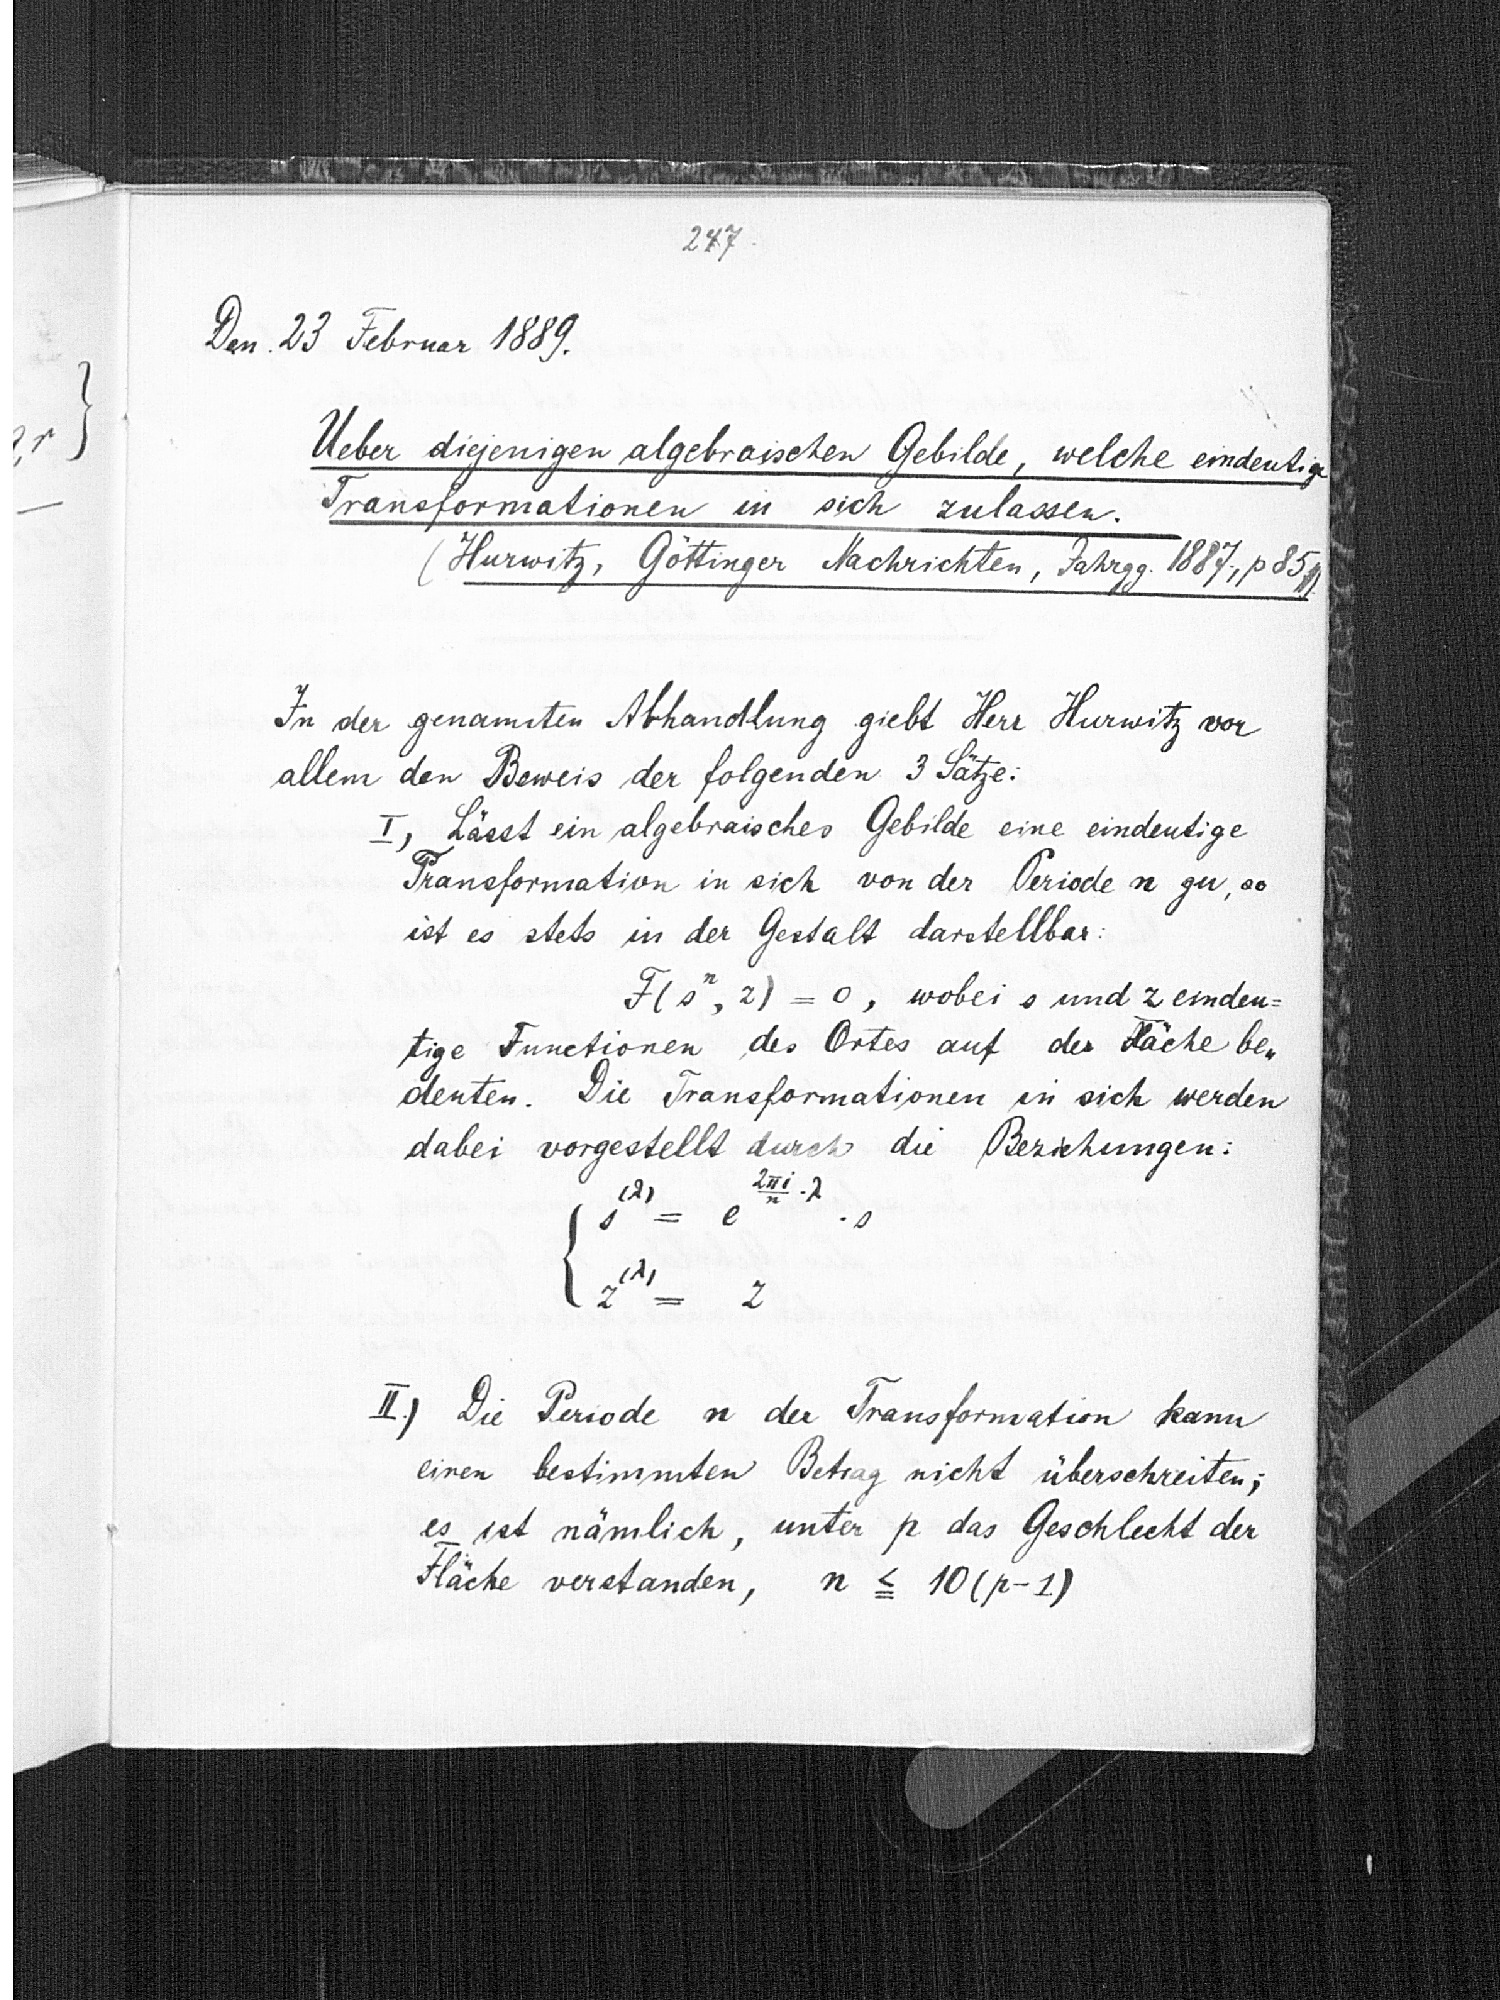 247.
Den. 23 Februar 1889.
Ueber diejenigen algebraischen Gebilde, welche eindeutige
Transformationen in sich zulassen.
(Hurwitz, Göttinger Nachrichten, Jahrgg. 1887, p 85 ff)
In der genannten Abhandlung giebt Herr Hurwitz vor
allem den Beweis der folgenden 3 Sätze:
I, Lässt ein algebraisches Gebilde eine eindeutige
Transformation in sich von der Periode n zu, so
ist es stets in der Gestalt darstellbar:
F(s^n, z) = 0, wobei s und z eindeu=
tige Functionen des Ortes auf der Fläche be„
deuten. Die Transformationen in sich werden
dabei vorgestellt durch die Beziehungen:
{ s^(λ) = e^(2πi/n · λ) · s
z^(λ) = z
II.) Die Periode n der Transformation kann
einen bestimmten Betrag nicht überschreiten;
es ist nämlich, unter p das Geschlecht der
Fläche verstanden, n ≦ 10(p-1)
, r }